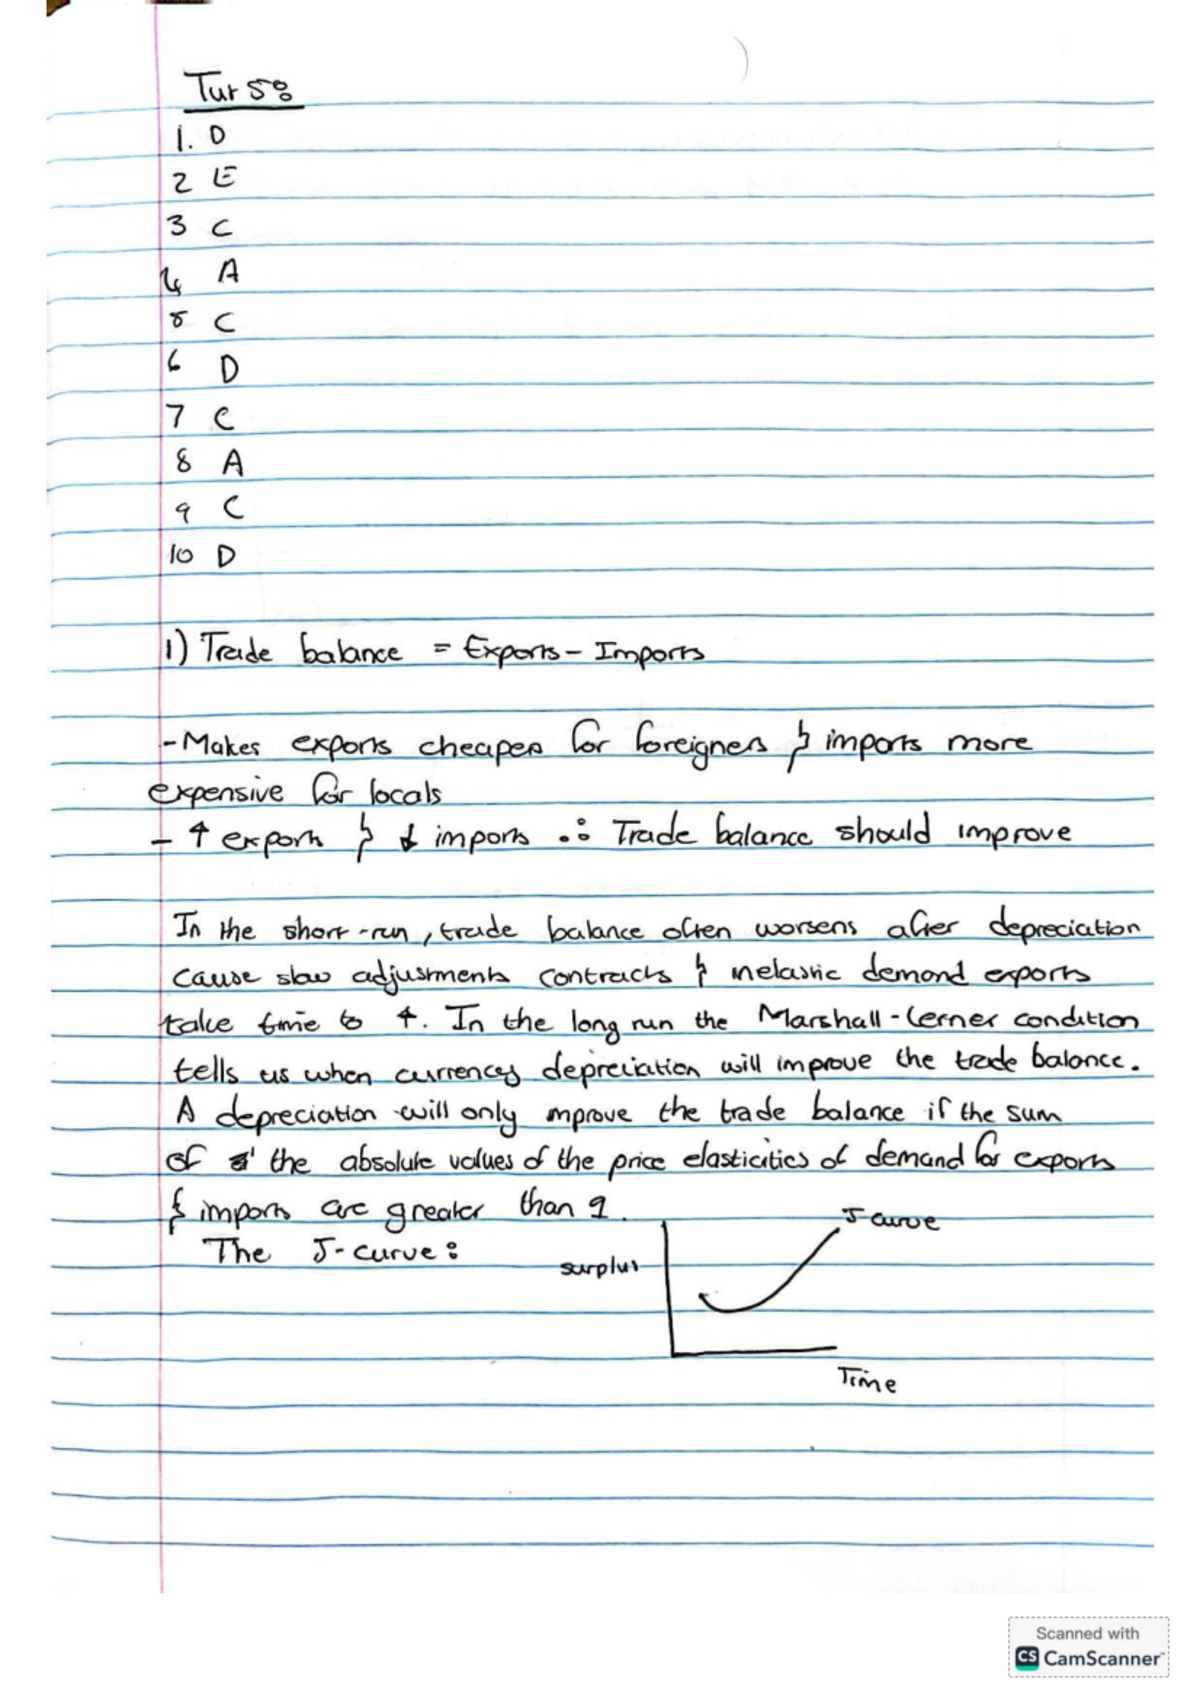 Tut 5:
1. D
2 E
3 C
4 A
5 C
6 D
7 C
8 A
9 C
10 D
1) Trade balance = Exports - Imports
- Makes exports cheaper for foreigners & imports more
expensive for locals
- ↑ exports & ↓ imports ∴ Trade balance should improve
In the short-run, trade balance often worsens after depreciation
cause slow adjustments contracts & inelastic demand exports
take time to ↑. In the long run the Marshall-Lerner condition
tells us when currency depreciation will improve the trade balance.
A depreciation will only improve the trade balance if the sum
of the absolute values of the price elasticities of demand for exports
& imports are greater than 1.
The J-curve:
J-curve
surplus
Time
Scanned with
CS CamScanner